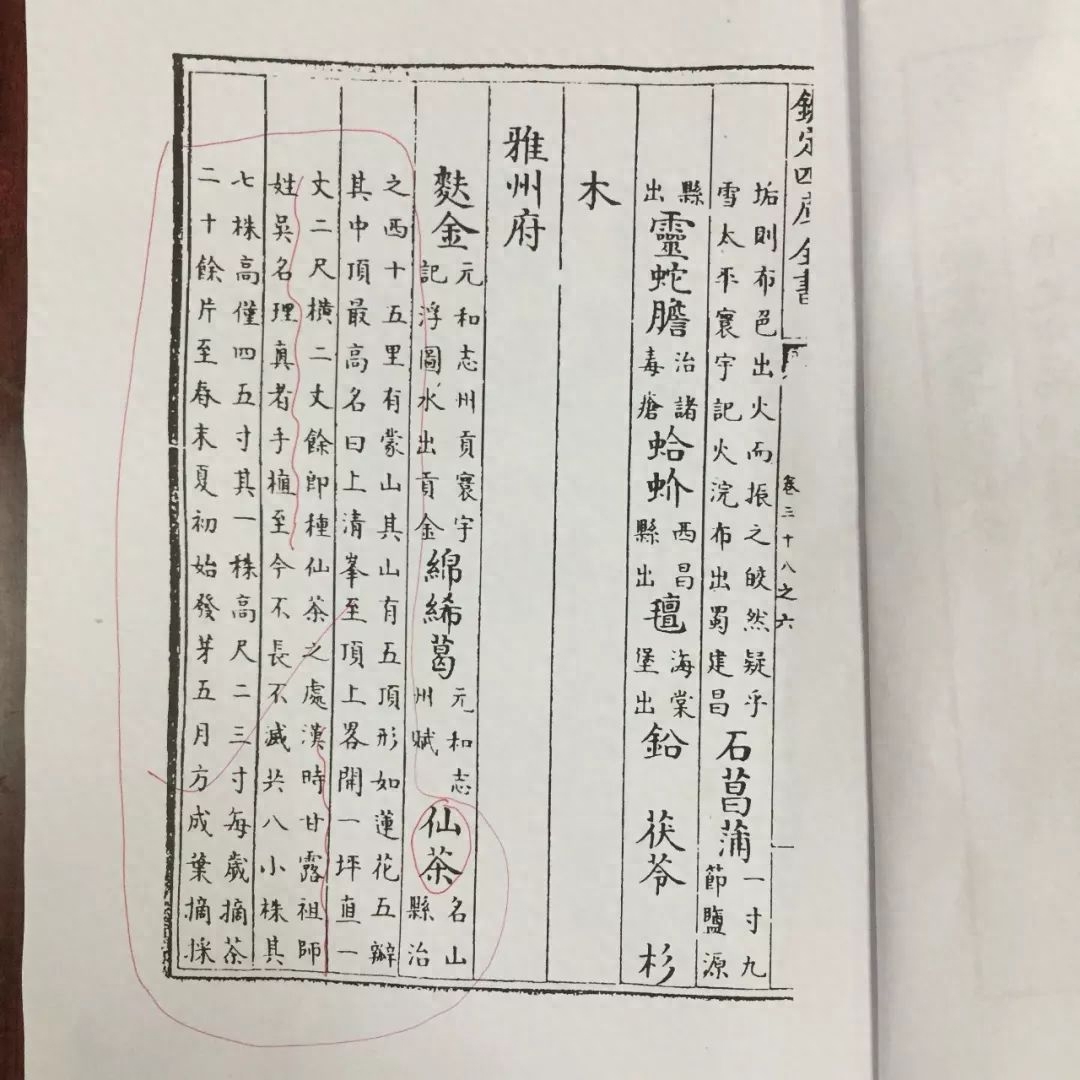 欽定四庫全書
卷三十八之六
垢則布色出火而振之皎然疑乎
雪太平寰宇記火浣布出蜀建昌
石菖蒲
一寸九
節鹽源
縣
出
靈蛇膽
治諸
毒瘡
蛤蚧
西昌
縣出
氊
海棠
堡出
鉛 茯苓 杉
木
雅州府
麩金
元和志州貢寰宇
記浮圖水出貢金
綿絺葛
元和志
州賦
仙茶
名山
縣治
之西十五里有蒙山其山有五頂形如蓮花五瓣
其中頂最高名曰上清峯至頂上畧開一坪直一
丈二尺橫二丈餘即種仙茶之處漢時甘露祖師
姓吳名理真者手植至今不長不滅共八小株其
七株高僅四五寸其一株高尺二三寸每歲摘茶
二十餘片至春末夏初始發芽五月方成葉摘採